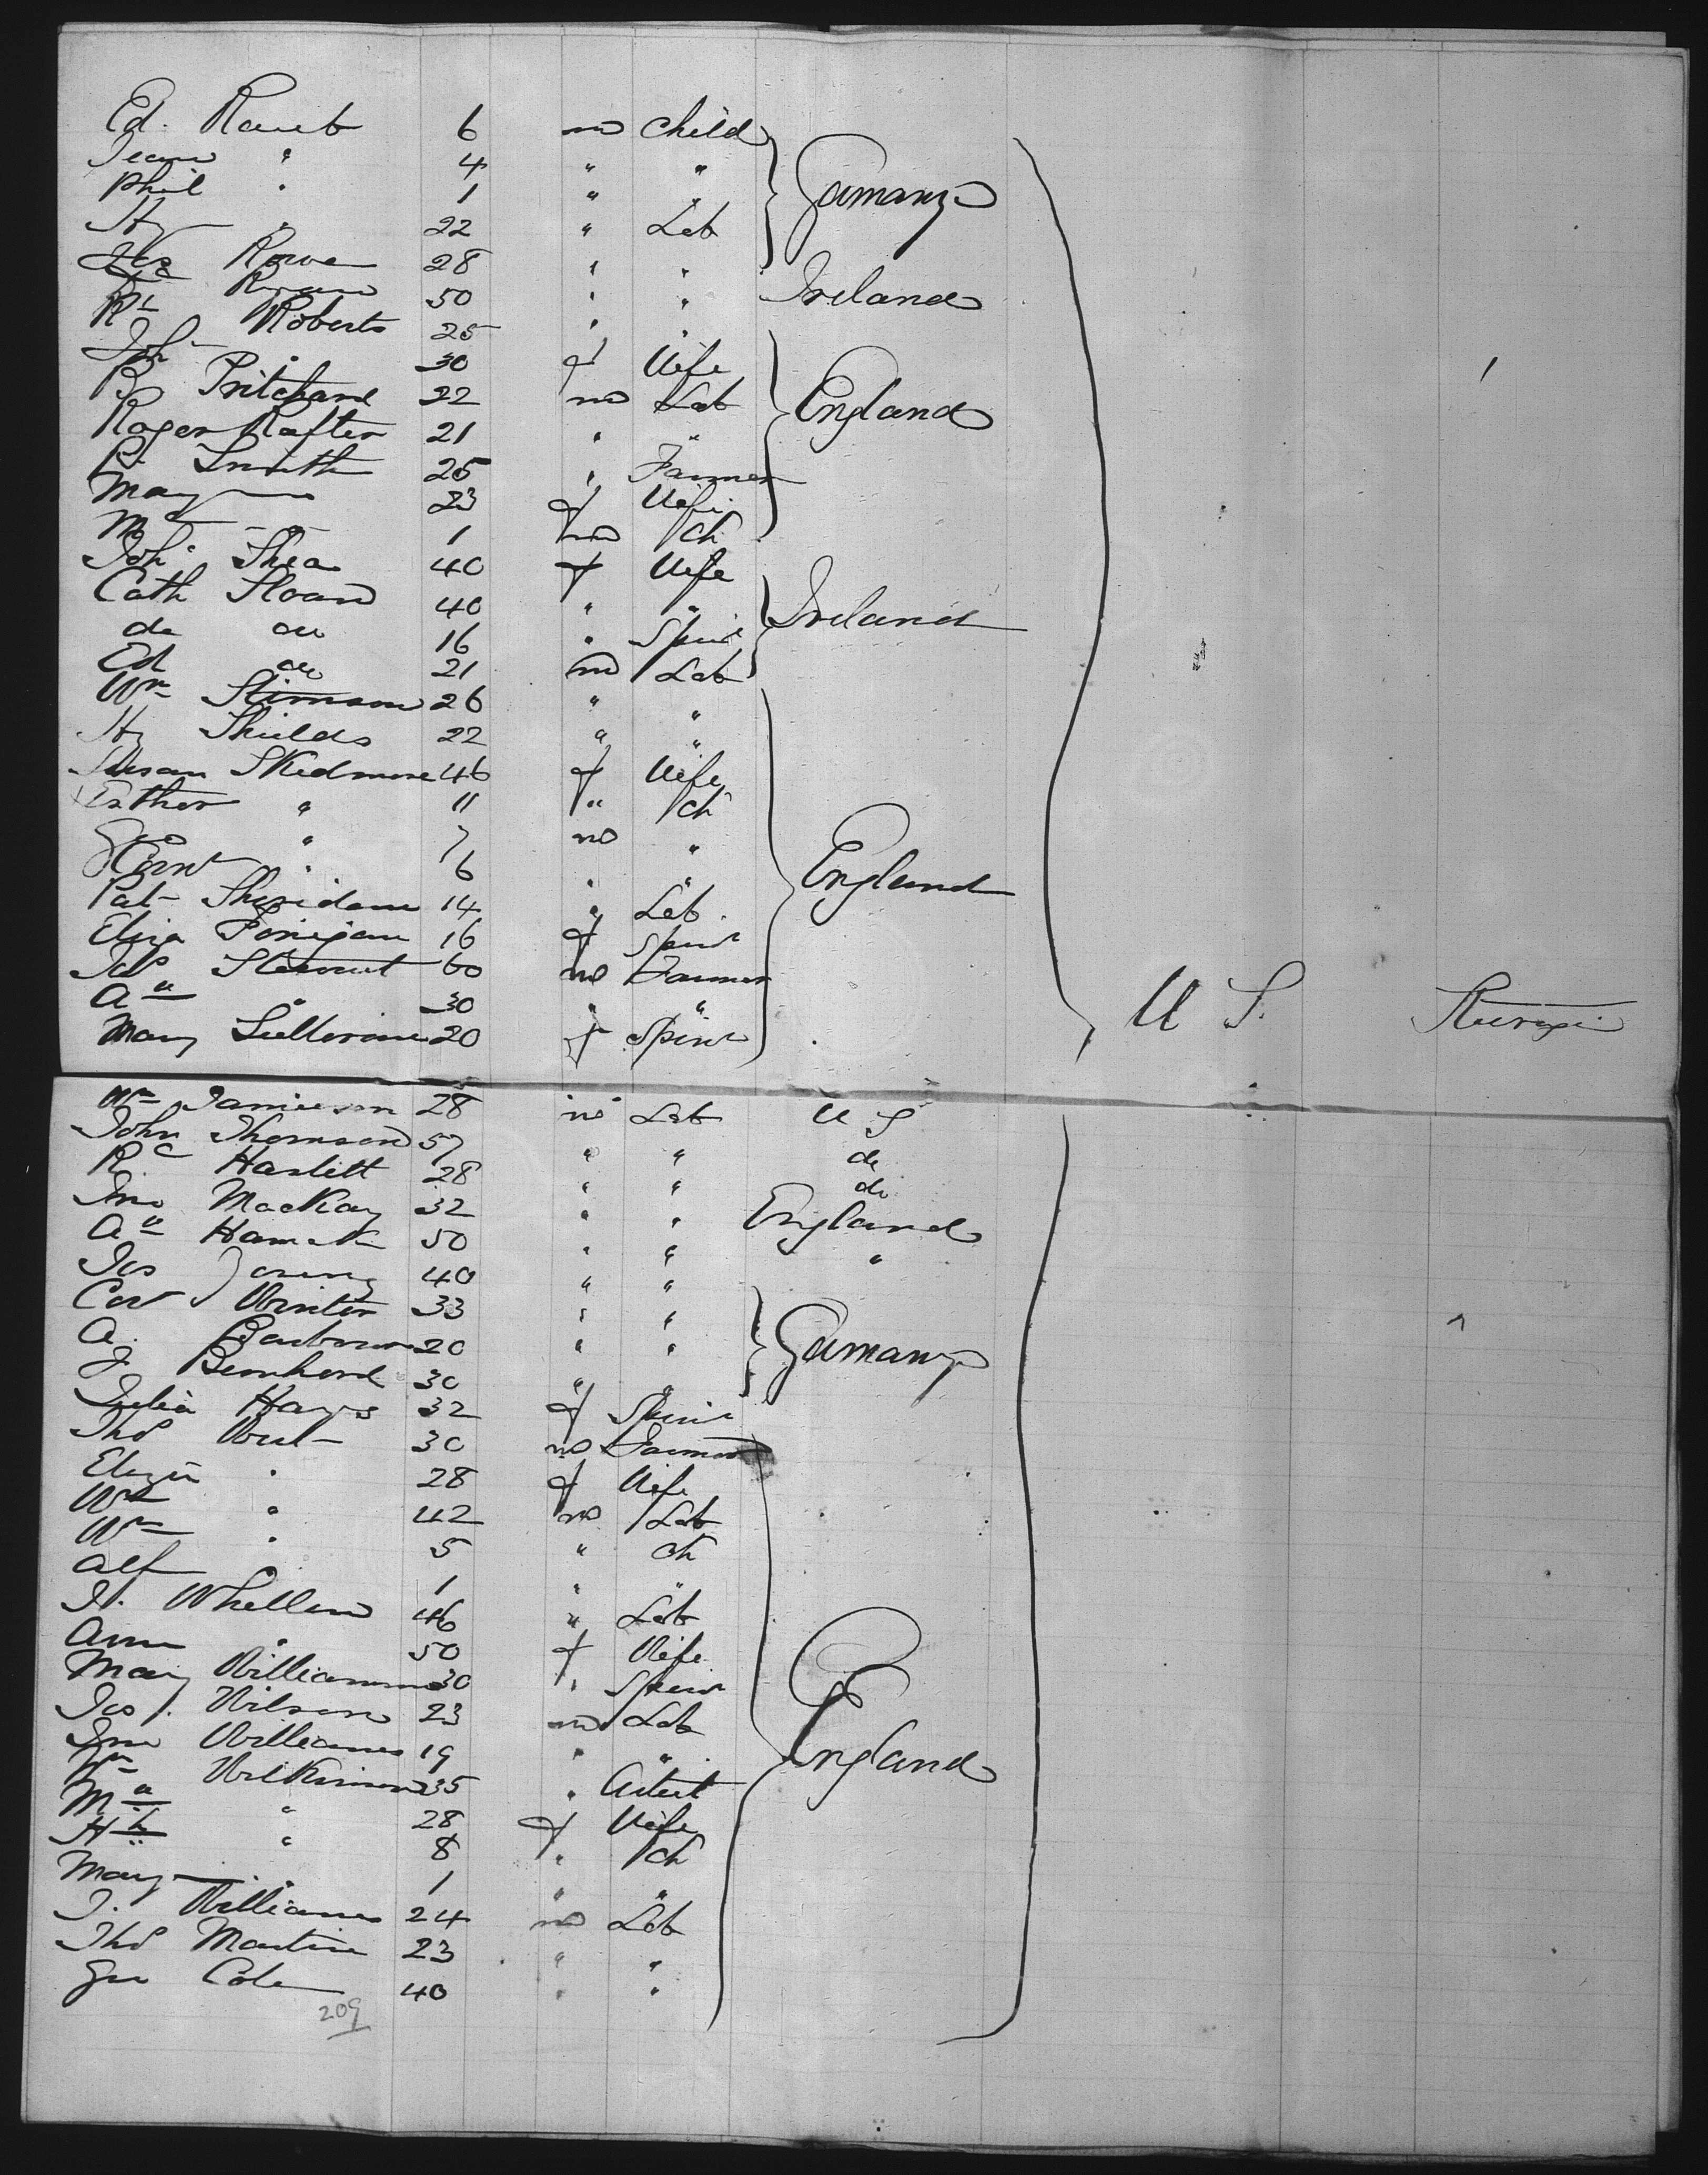 Ed. Raub 6 m Child
Jean " 4 " "
Phil " 1 " " Germany
Hy " 22 " Lab
Jas Rowe 28 " "
Ryan 50 " " Ireland
Rt Roberts 25 " "
Joh 30 f Wife
Pritchard 22 m Lab England
Roger Rafter 21 " "
Smith 25 " Farmer
Mary 23 f Wife
M 1 m Ch
Joh Shea 40 f Wife
Cath Sloan 40 " " Ireland
do do 16 " Spinr
Ed do 21 m Lab
Wm Stimson 26 " "
Hy Shields 22 " "
Susan Skidmore 46 f Wife
Esther " 11 " Ch
Geo " 7 m "
" 6 " " England
Pat Sheridan 14 " Lab
Eliza Finigan 16 f Spinr
Jas Stewart 60 m Farmer
A " 30 " "
Mary Sullivan 20 f Spinr U S. Steerage
Wm Jamieson 28 m Lab U S
John Thomson 57 " " do
R. Haslett 28 " " do
Jno MacKay 32 " " England
50 " " "
Jos Young 40 " "
Winter 33 " "
A. 20 " " Germany
J Bernhard 30 " "
Julia Hays 32 f Spinr
Thos West 30 m Farmer
Eliza " 28 f Wife
Wm " 42 m Lab
Wm " 5 " Ch
Alf 1 " "
J. Whellan 46 " Lab
Ann " 50 f Wife
Mary Williamson 30 " Spinr
Jos. Wilson 23 m Lab
Jno Williams 19 " " England
Wm Wilkinson 35 " Artist
M " 28 f Wife
H " 8 " Ch
Mary " 1 " "
J. Williams 24 m Lab
Thos Martin 23 " "
Geo Cole 40 " "
209